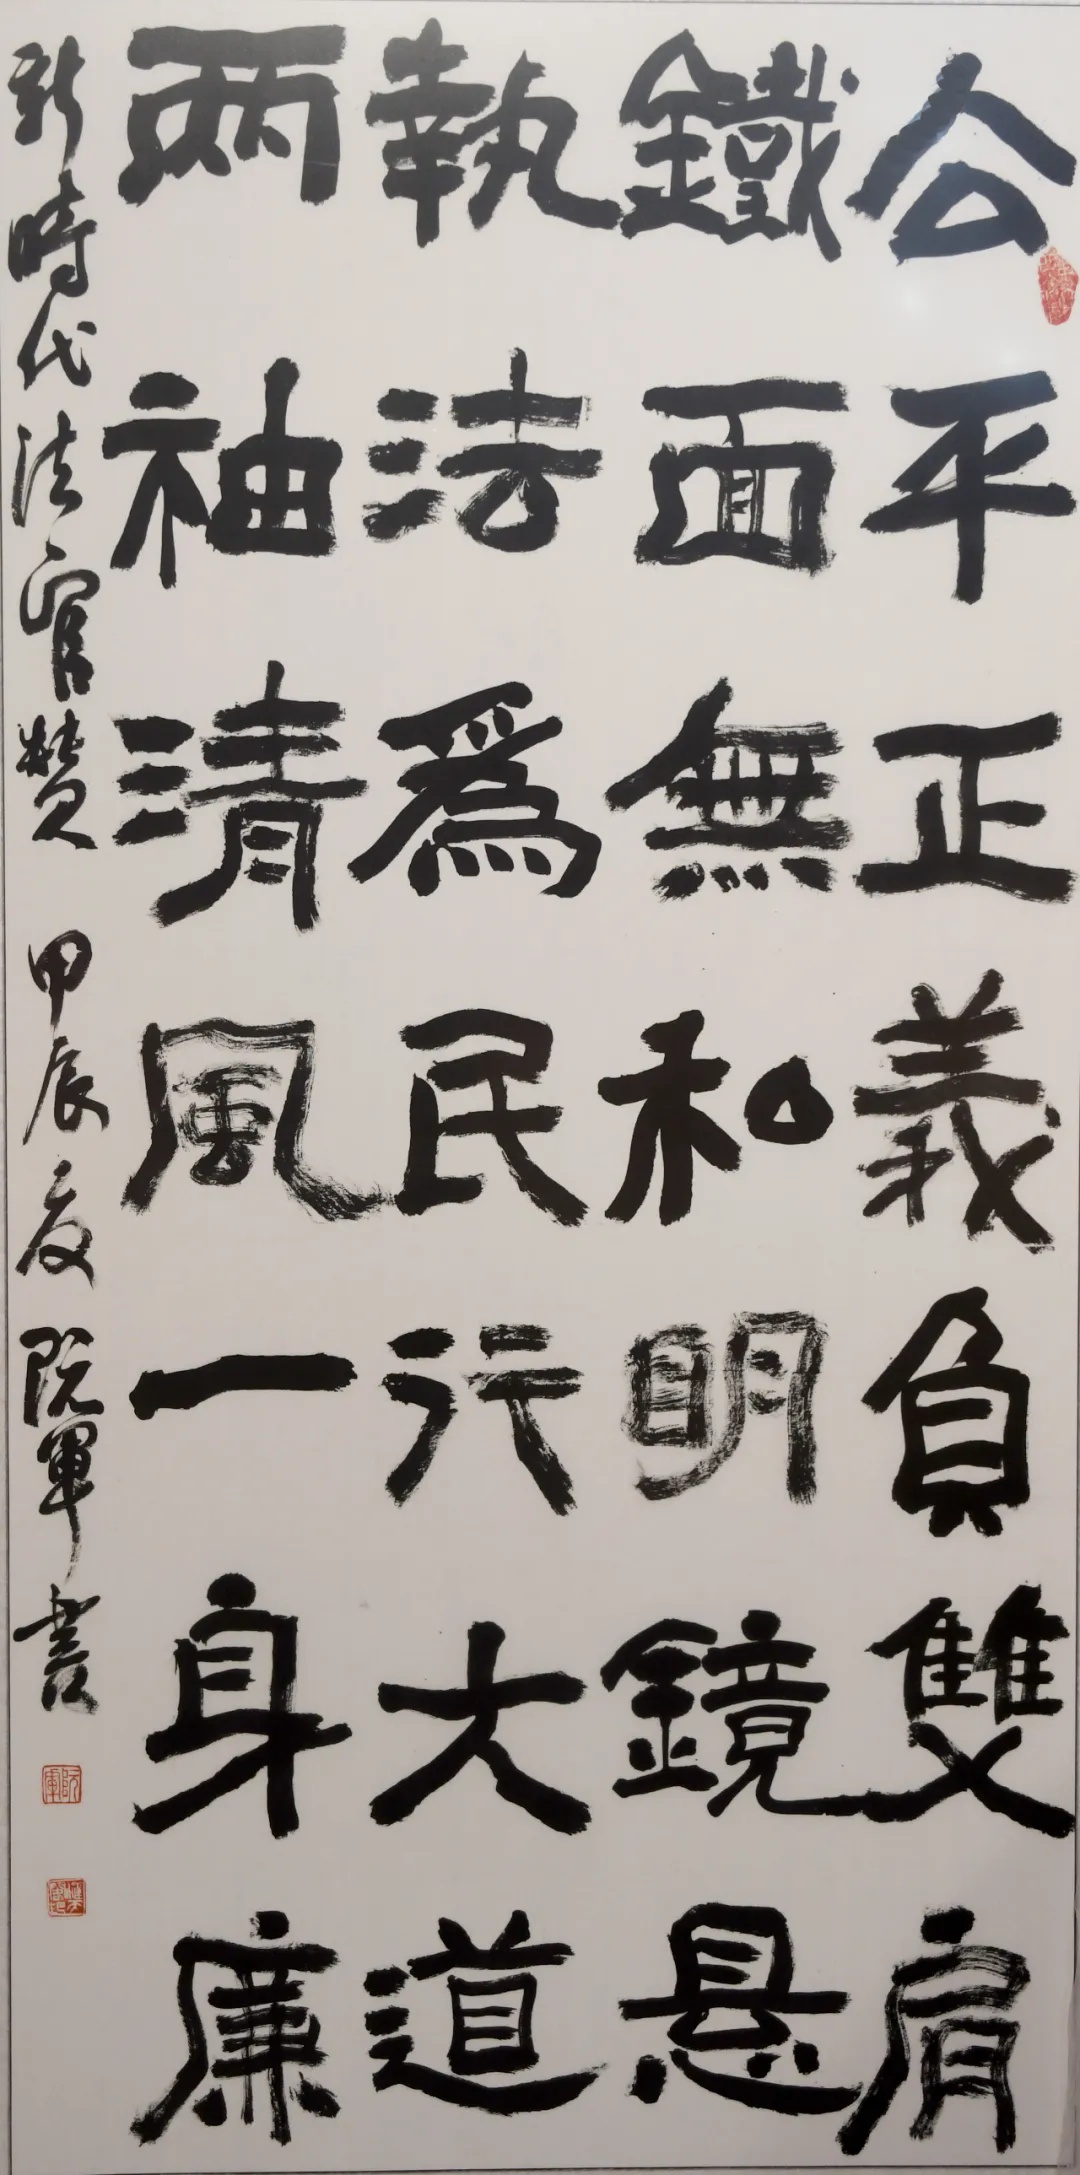 公平正義負雙肩
鐵面無私明鏡悬
執法爲民行大道
兩袖清風一身廉
新時代法官赞 甲辰夏 阮軍書
阮軍